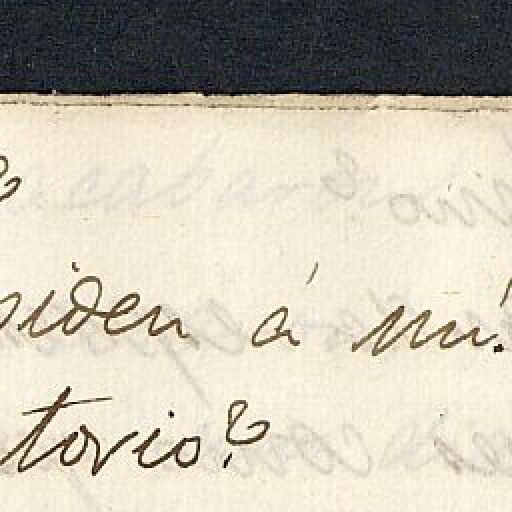 ?
piden á mí!
torio?